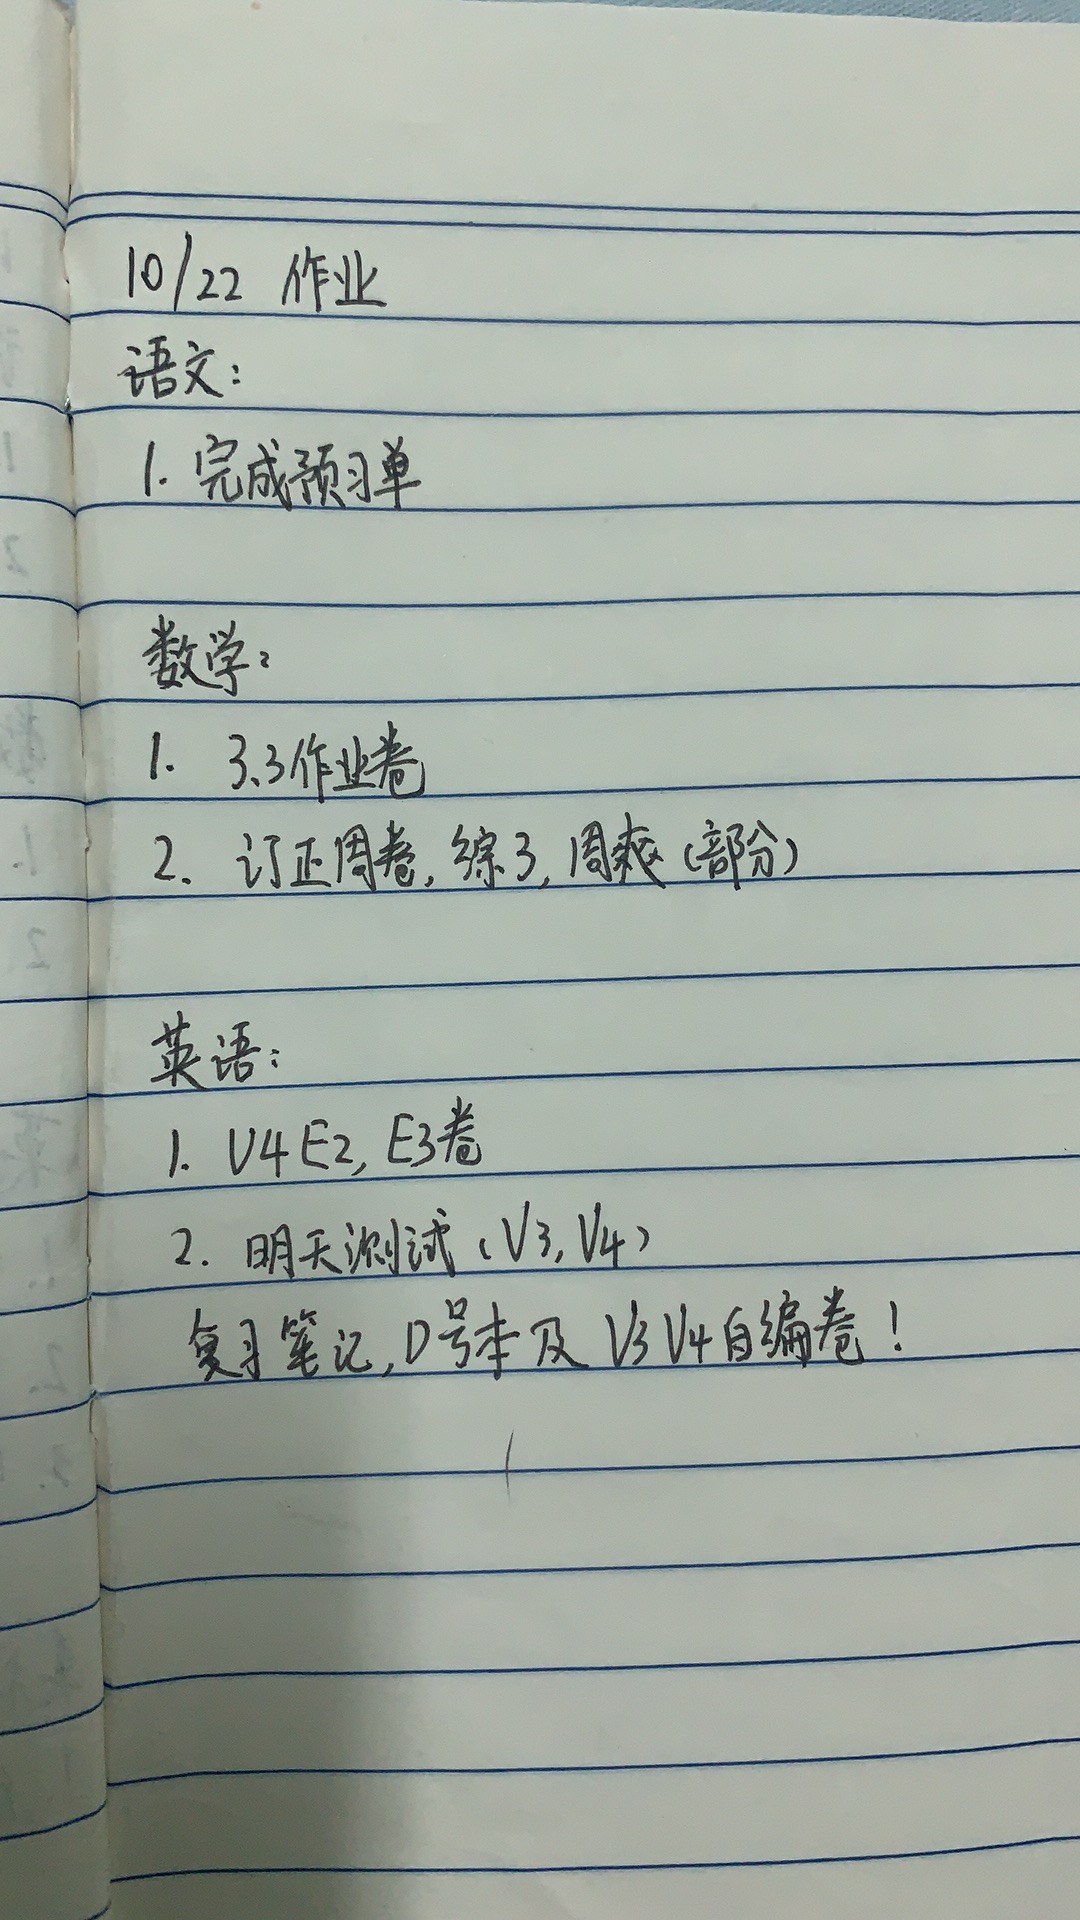 10/22 作业
语文:
1. 完成预习单
数学:
1. 3.3作业卷
2. 订正周卷, 综3, 周爽(部分)
英语:
1. U4 E2, E3卷
2. 明天测试 (V3, V4)
复习笔记, D号本及 V3 V4自编卷!